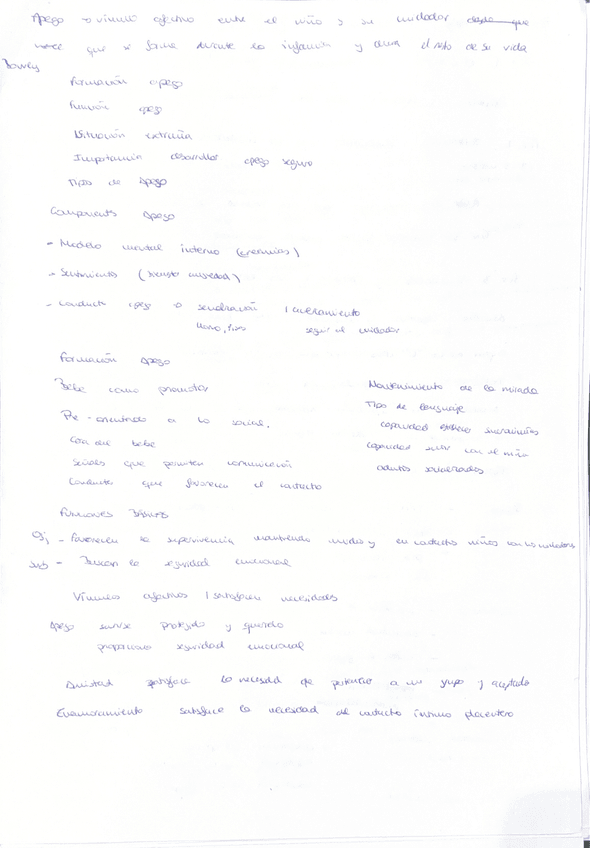 Apego → vinculo afectivo entre el niño y su cuidador desde que
nace que se forma durante la infancia y dura el resto de su vida
Bowlby
Formación apego
Función apego
Situación extraña
Importancia desarrollar apego seguro
Tipos de Apego
Components Apego
- Modelo mental interno (creencias)
- Sentimientos (ansiedad)
- Conducta apego → señalización / acercamiento
lloro, risa seguir al cuidador
Formación Apego
Bebé como promotor
Pre-orientado a lo social.
Cara del bebé
Señales que permiten comunicación
Conducta que favorecen el contacto
Mantenimiento de la mirada
Tipo de lenguaje
capacidad establecer
capacidad con el niño
adultos socializados
Funciones Básicas
Obj - Favorecen la supervivencia manteniendo y en contacto niños con los cuidadores
sub - Buscan la seguridad emocional
Vínculos afectivos / satisfacen necesidades
Apego sentirse protegido y querido
proporciona seguridad emocional
Amistad satisface la necesidad de pertenecer a un grupo y aceptado
Enamoramiento satisface la necesidad de contacto íntimo placentero